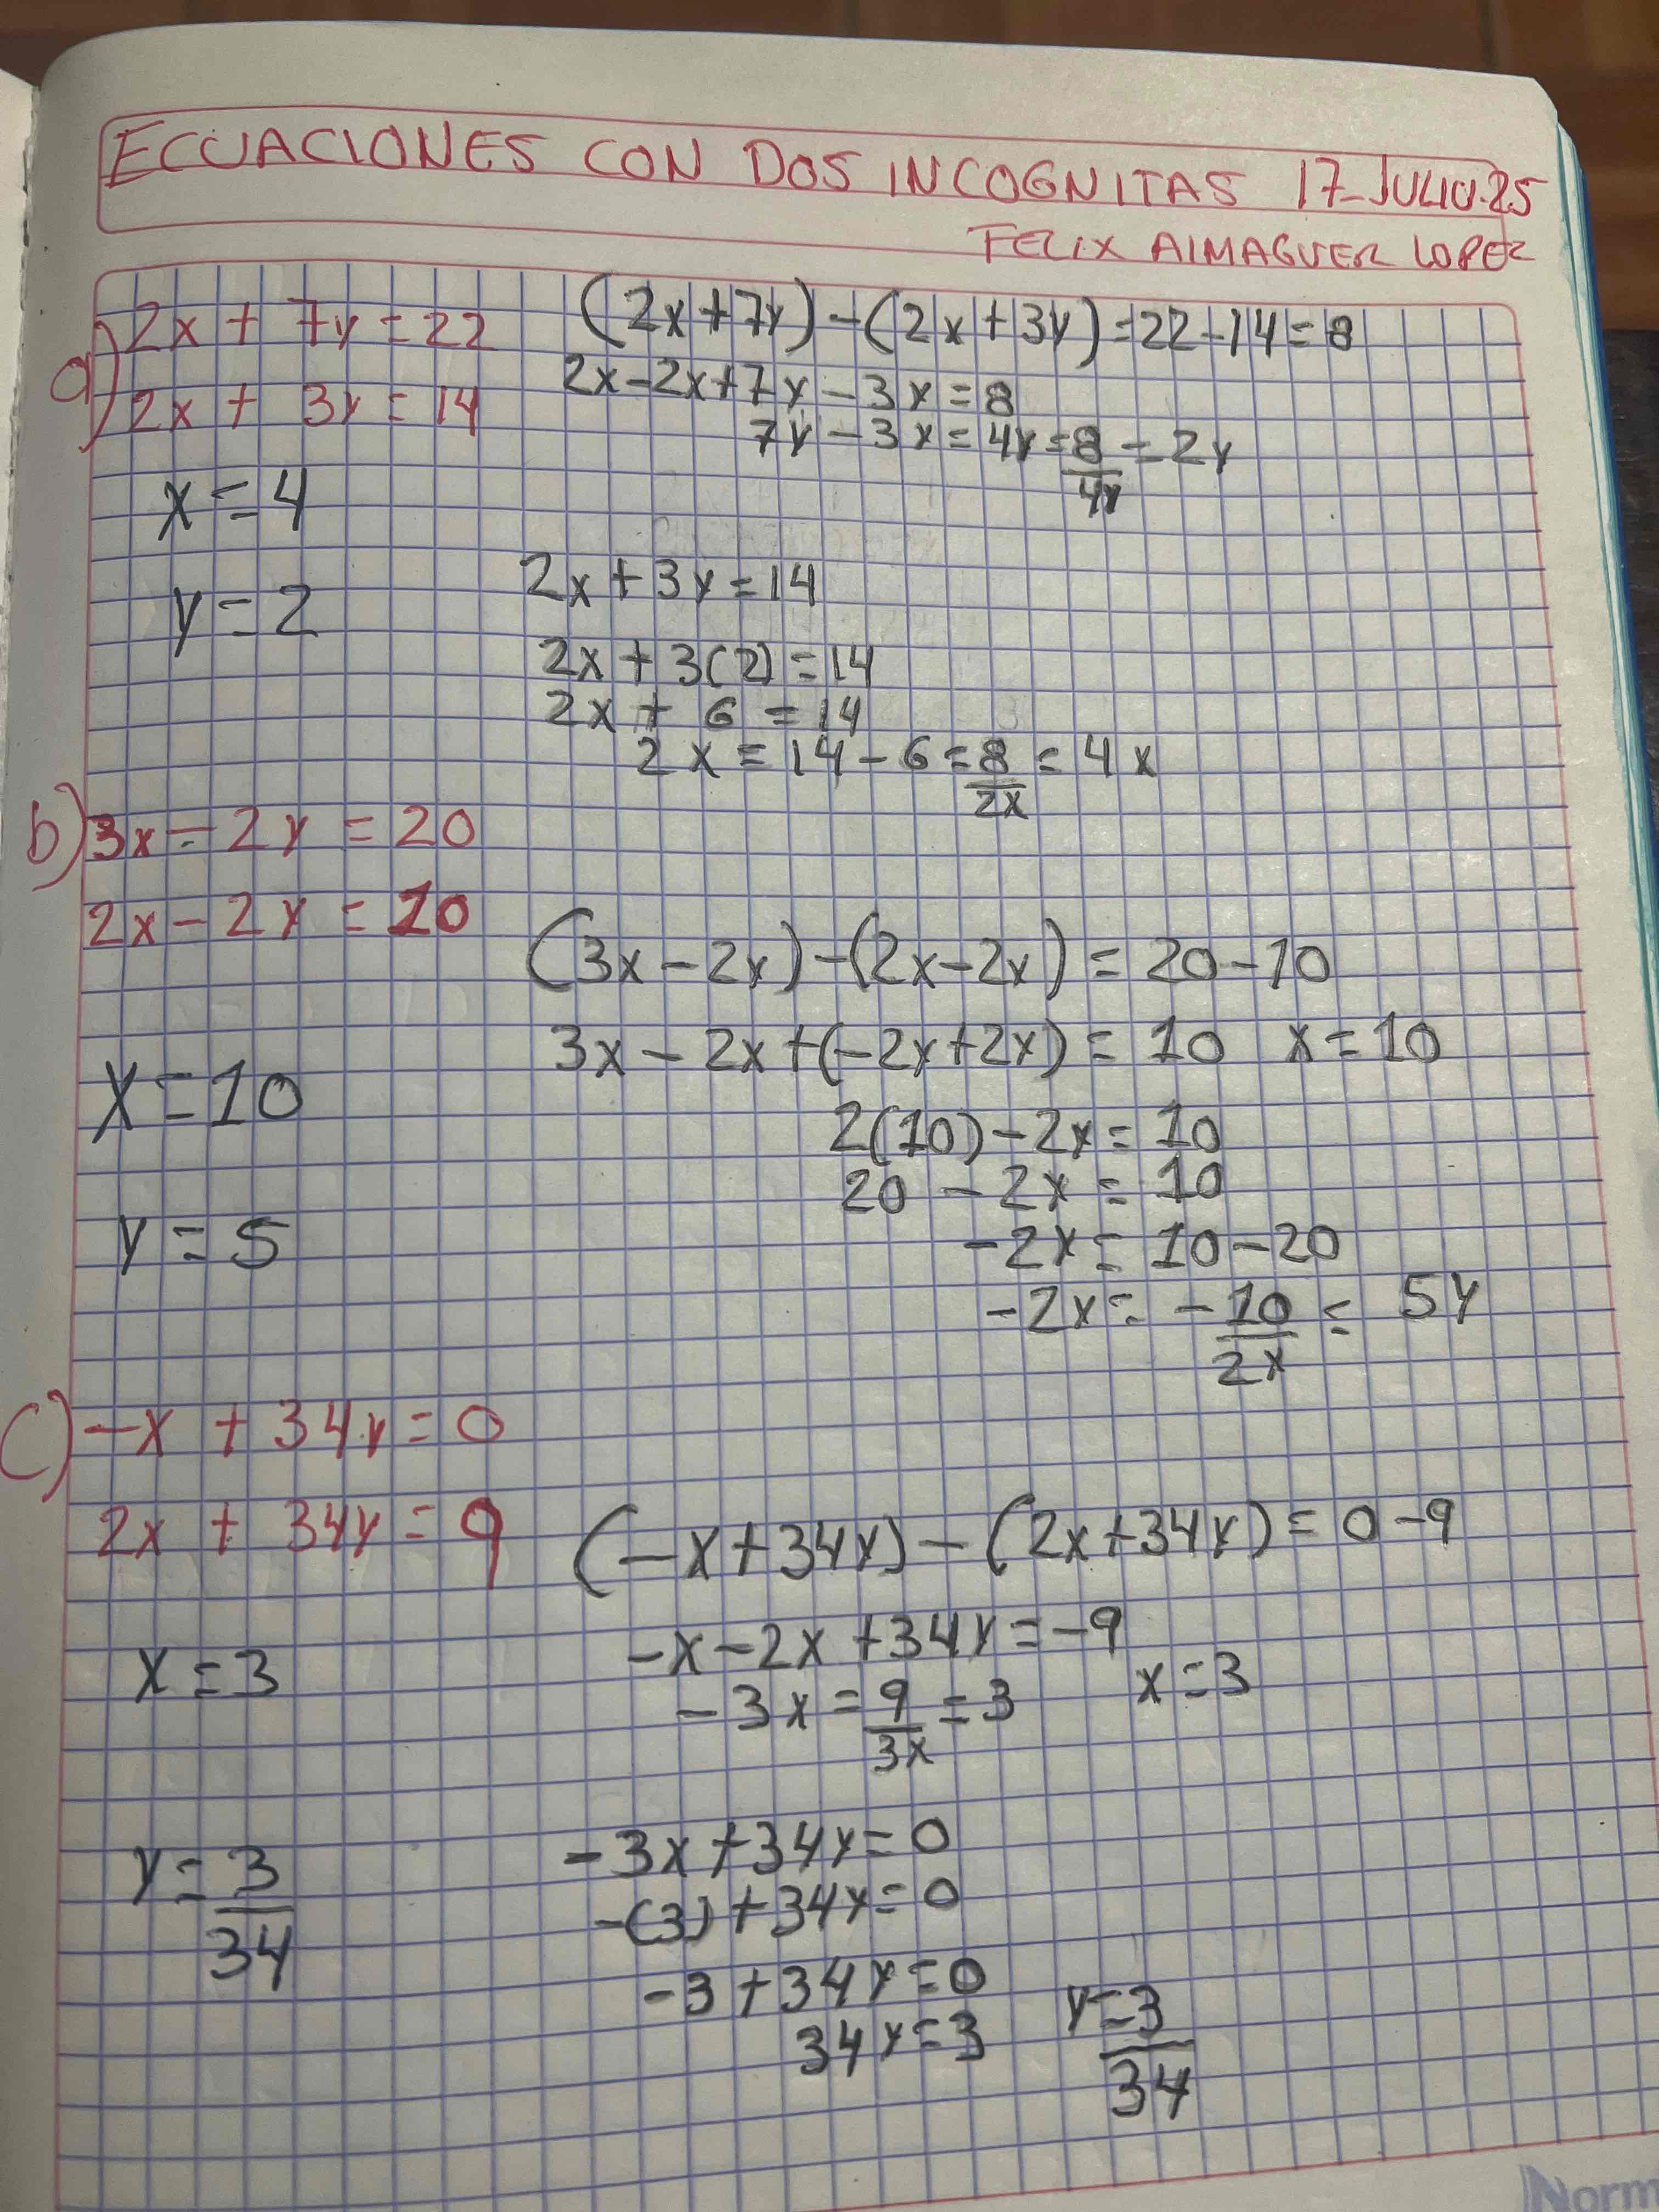 ECUACIONES CON DOS INCOGNITAS 17-JULIO-25
FELIX AlMAGUER LOPEZ
a) 2x + 7y = 22
2x + 3y = 14
(2x+7y)-(2x+3y)=22-14=8
2x-2x+7y-3y=8
7y-3y=4y=8/4y=2y
x=4
y=2
2x+3y=14
2x+3(2)=14
2x+6=14
2x=14-6=8/2x=4x
b) 3x-2y=20
2x-2y=10
(3x-2y)-(2x-2y)=20-10
3x-2x+(-2y+2y)=10 x=10
2(10)-2y=10
20-2y=10
-2y=10-20
-2y=-10/2y=5y
X=10
y=5
c) -x+34y=0
2x+34y=9
(-x+34y)-(2x+34y)=0-9
-x-2x+34y=-9
-3x=9/3x=3 x=3
x=3
-3x+34y=0
-(3)+34y=0
-3+34y=0
34y=3 y=3/34
y=3/34
Norm